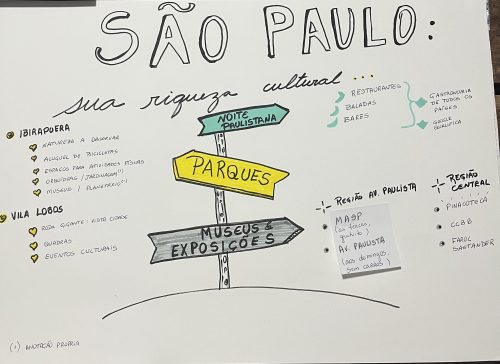 SÃO PAULO:
sua riqueza cultural ...
NOITE
PAULISTANA
RESTAURANTES
BALADAS
BARES
GASTRONOMIA
DE TODOS OS
PAÍSES
IBIRAPUERA
NATUREZA A OBSERVAR
ALUGUEL DE BICICLETAS
ESPAÇOS PARA ATIVIDADES FÍSICAS
ORQUÍDEAS / JARDINAGEM(1)
MUSEUS / PLANETÁRIO(1)
PARQUES
VILA LOBOS
RODA GIGANTE: VISTA CIDADE
QUADRAS
EVENTOS CULTURAIS
MUSEUS &
EXPOSIÇÕES
REGIÃO AV. PAULISTA
MASP
(às terças,
grátis)
AV. PAULISTA
(aos domingos,
sem carros)
REGIÃO
CENTRAL
PINACOTECA
CCBB
FAROL
SANTANDER
(1) ANOTAÇÃO PRÓPRIA